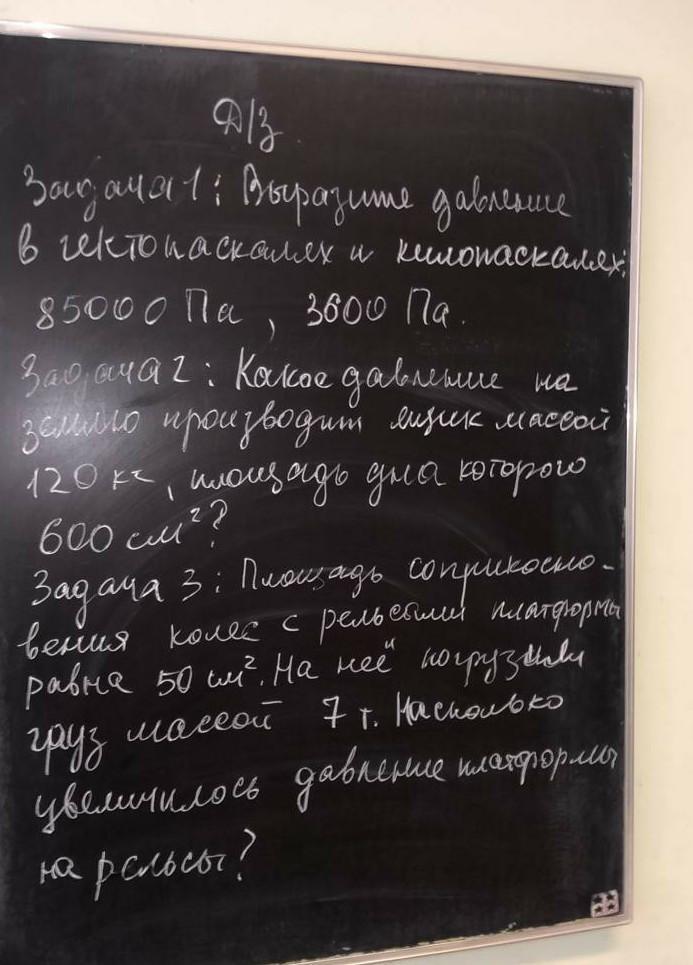 Д/З
Задача 1: Выразите давление
в гектопаскалях и килопаскалях:
85000 Па, 3600 Па.
Задача 2: Какое давление на
землю производит ящик массой
120 кг, площадь дна которого
600 см²?
Задача 3: Площадь соприкосно-
вения колес с рельсами платформы
равна 50 см². На неё погрузили
груз массой 7 т. Насколько
увеличилось давление платформы
на рельсы?